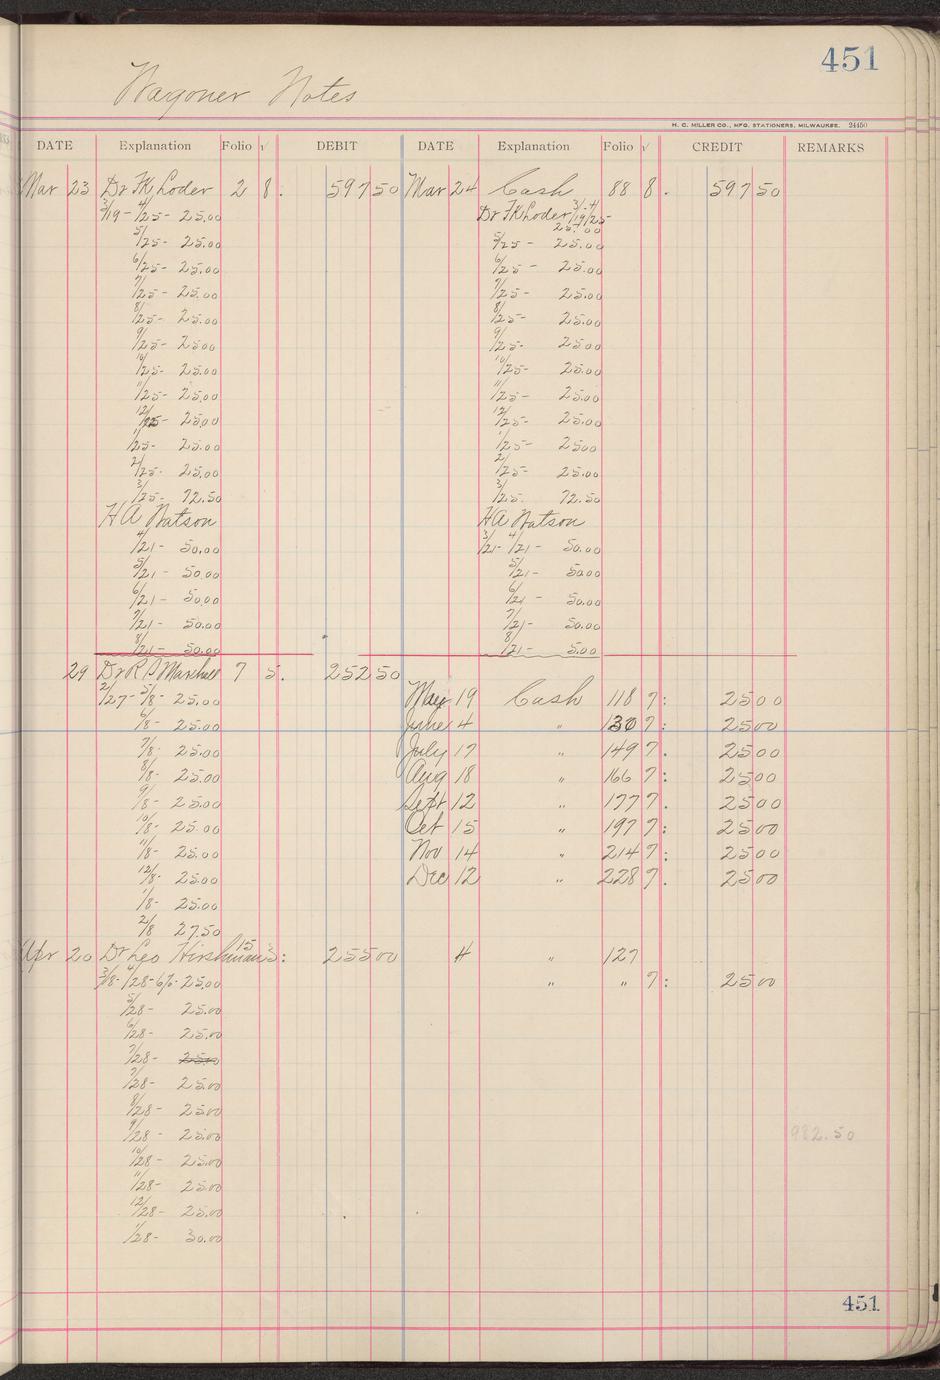 451
Wagoner Notes
H. C. MILLER CO., MFG. STATIONERS, MILWAUKEE. 24450
DATE Explanation Folio √ DEBIT DATE Explanation Folio √ CREDIT REMARKS
Mar 23 Dr FK Loder 2 8. 597 50 Mar 24 Cash 88 8. 597 50
3/19 - 4/25 - 25.00 Dr FK Loder 3/19 - 4/25 -
25.00
5/25 - 25.00 5/25 - 25.00
6/25 - 25.00 6/25 - 25.00
7/25 - 25.00 7/25 - 25.00
8/25 - 25.00 8/25 - 25.00
9/25 - 25.00 9/25 - 25.00
10/25 - 25.00 10/25 - 25.00
11/25 - 25.00 11/25 - 25.00
12/25 - 25.00 12/25 - 25.00
1/25 - 25.00 1/25 - 25.00
2/25 - 25.00 2/25 - 25.00
3/25 - 72.50 3/25 - 72.50
H A Watson H A Watson
4/21 - 50.00 3/21 - 4/21 - 50.00
5/21 - 50.00 5/21 - 50.00
6/21 - 50.00 6/21 - 50.00
7/21 - 50.00 7/21 - 50.00
8/21 - 50.00 8/21 - 5.00
29 Dr R P Marshall 7 5. 252 50
2/27 - 5/8 - 25.00 May 19 Cash 118 7: 25 00
6/8 - 25.00 June 4 " 130 7: 25 00
7/8 - 25.00 July 17 " 149 7. 25 00
8/8 - 25.00 Aug 18 " 166 7: 25 00
9/8 - 25.00 Sept 12 " 177 7. 25 00
10/8 - 25.00 Oct 15 " 197 7: 25 00
11/8 - 25.00 Nov 14 " 214 7: 25 00
12/8 - 25.00 Dec 12 " 228 7. 25 00
1/8 - 25.00
2/8 27.50
Apr 20 Dr Leo Hirshman 15 3: 255 00 4 " 127
3/8 - 4/28 - 6% - 25.00 " " 7: 25 00
5/28 - 25.00
6/28 - 25.00
7/28 - 25.00
7/28 - 25.00
8/28 - 25.00
9/28 - 25.00 982.50
10/28 - 25.00
11/28 - 25.00
12/28 - 25.00
1/28 - 30.00
451